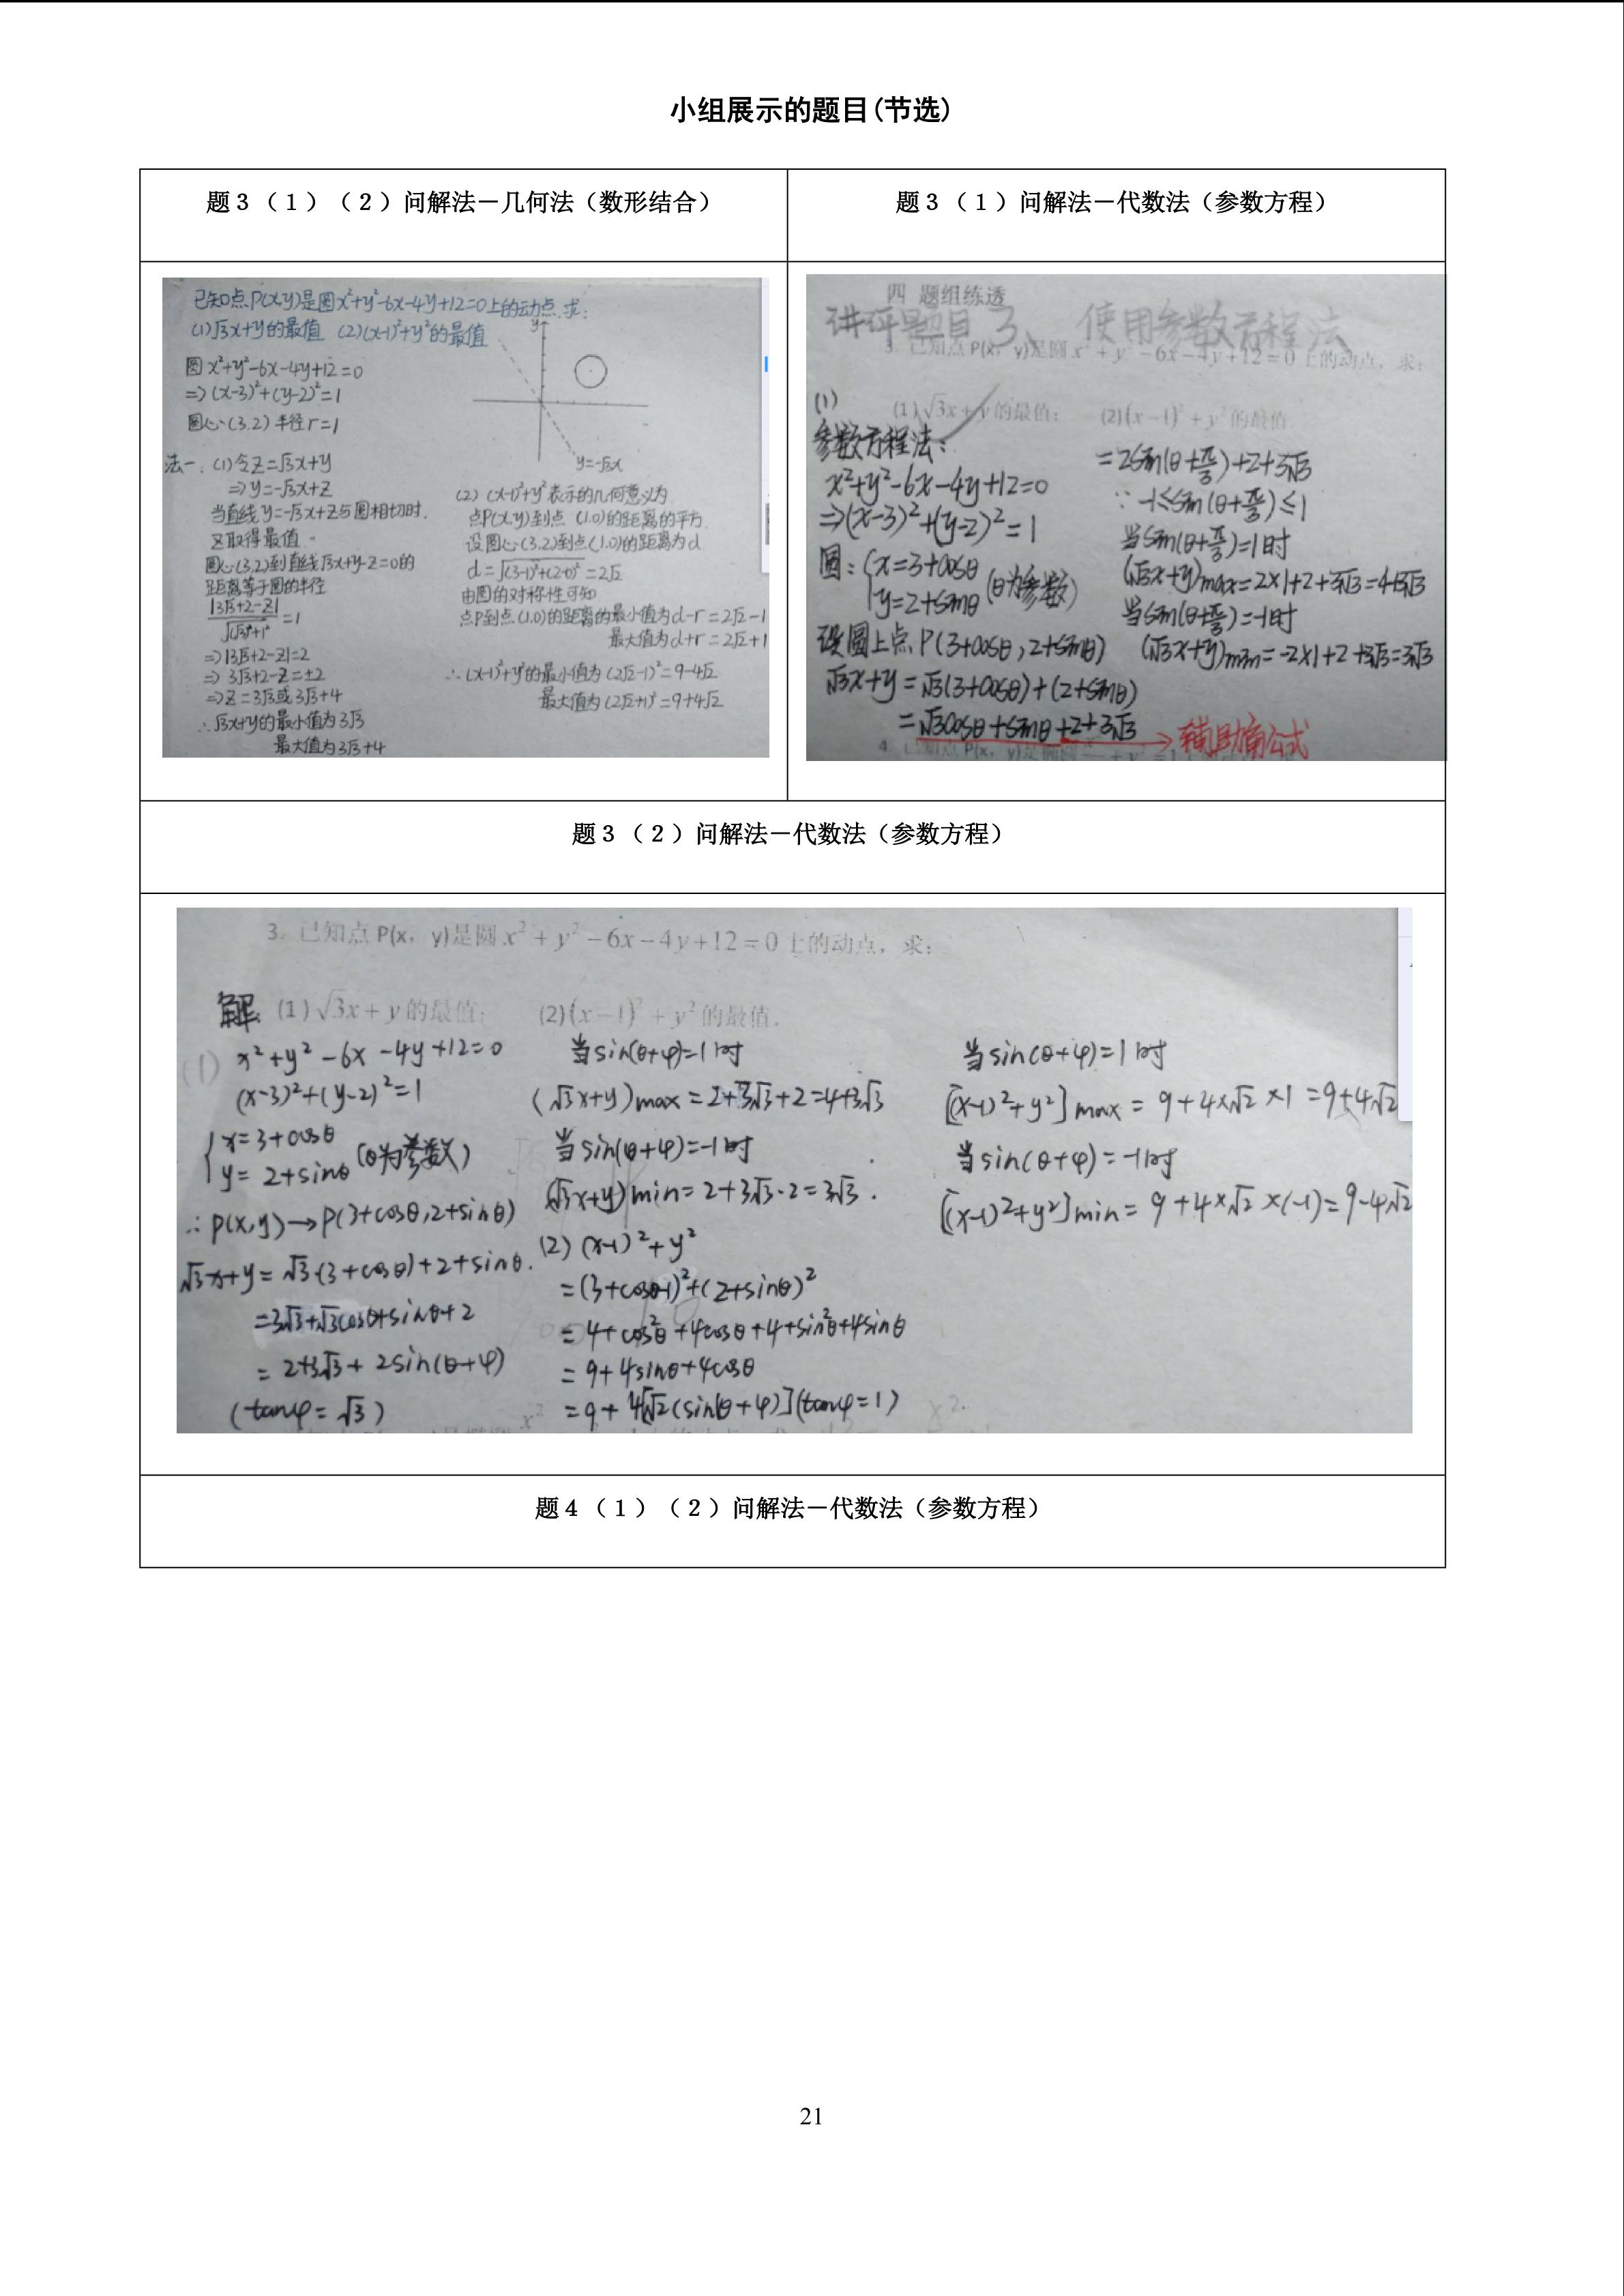 小组展示的题目(节选)
题3（1）（2）问解法－几何法（数形结合）
题3（1）问解法－代数法（参数方程）
已知点P(x,y)是圆x²+y²-6x-4y+12=0上的动点.求:
(1)√3x+y的最值 (2)(x-1)²+y²的最值
圆x²+y²-6x-4y+12=0
⇒(x-3)²+(y-2)²=1
圆心(3,2) 半径r=1
y
y=-√3x
法一:(1)令Z=√3x+y
⇒y=-√3x+Z
当直线y=-√3x+Z与圆相切时.
Z取得最值.
圆心(3,2)到直线√3x+y-Z=0的
距离等于圆的半径
|3√3+2-Z|/√(√3)²+1² =1
⇒|3√3+2-Z|=2
⇒3√3+2-Z=±2
⇒Z=3√3或3√3+4
∴√3x+y的最小值为3√3
最大值为3√3+4
(2) (x-1)²+y²表示的几何意义为
点P(x,y)到点(1,0)的距离的平方.
设圆心(3,2)到点(1,0)的距离为d
d=√(3-1)²+(2-0)²=2√2
由圆的对称性可知
点P到点(1,0)的距离的最小值为d-r=2√2-1
最大值为d+r=2√2+1
∴(x-1)²+y²的最小值为(2√2-1)²=9-4√2
最大值为(2√2+1)²=9+4√2
四 题组练透
讲评题目3、使用参数方程法
3. 已知点P(x, y)是圆x²+y²-6x-4y+12=0上的动点，求:
(1)√3x+y的最值; (2)(x-1)²+y²的最值
(1)
参数方程法:
x²+y²-6x-4y+12=0
⇒(x-3)²+(y-2)²=1
圆:{x=3+cosθ
y=2+sinθ (θ为参数)
设圆上点P(3+cosθ,2+sinθ)
√3x+y=√3(3+cosθ)+(2+sinθ)
=√3cosθ+sinθ+2+3√3
→辅助角公式
=2sin(θ+π/3)+2+3√3
∵-1≤sin(θ+π/3)≤1
当sin(θ+π/3)=1时
(√3x+y)max=2×1+2+3√3=4+3√3
当sin(θ+π/3)=-1时
(√3x+y)min=-2×1+2+3√3=3√3
题3（2）问解法－代数法（参数方程）
3. 已知点P(x, y)是圆x²+y²-6x-4y+12=0上的动点，求:
解. (1)√3x+y的最值; (2)(x-1)²+y²的最值.
(1) x²+y²-6x-4y+12=0
(x-3)²+(y-2)²=1
{x=3+cosθ
y=2+sinθ (θ为参数)
∴P(x,y)→P(3+cosθ,2+sinθ)
√3x+y=√3(3+cosθ)+2+sinθ.
=3√3+√3cosθ+sinθ+2
=2+3√3+2sin(θ+φ)
(tanφ=√3)
当sin(θ+φ)=1时
(√3x+y)max=2+3√3+2=4+3√3
当sin(θ+φ)=-1时
(√3x+y)min=2+3√3-2=3√3.
(2) (x-1)²+y²
=(3+cosθ-1)²+(2+sinθ)²
=4+cos²θ+4cosθ+4+sin²θ+4sinθ
=9+4sinθ+4cosθ
=9+4[√2(sin(θ+φ)](tanφ=1)
当sin(θ+φ)=1时
[(x-1)²+y²]max=9+4×√2×1=9+4√2
当sin(θ+φ)=-1时
[(x-1)²+y²]min=9+4×√2×(-1)=9-4√2
题4（1）（2）问解法－代数法（参数方程）
21